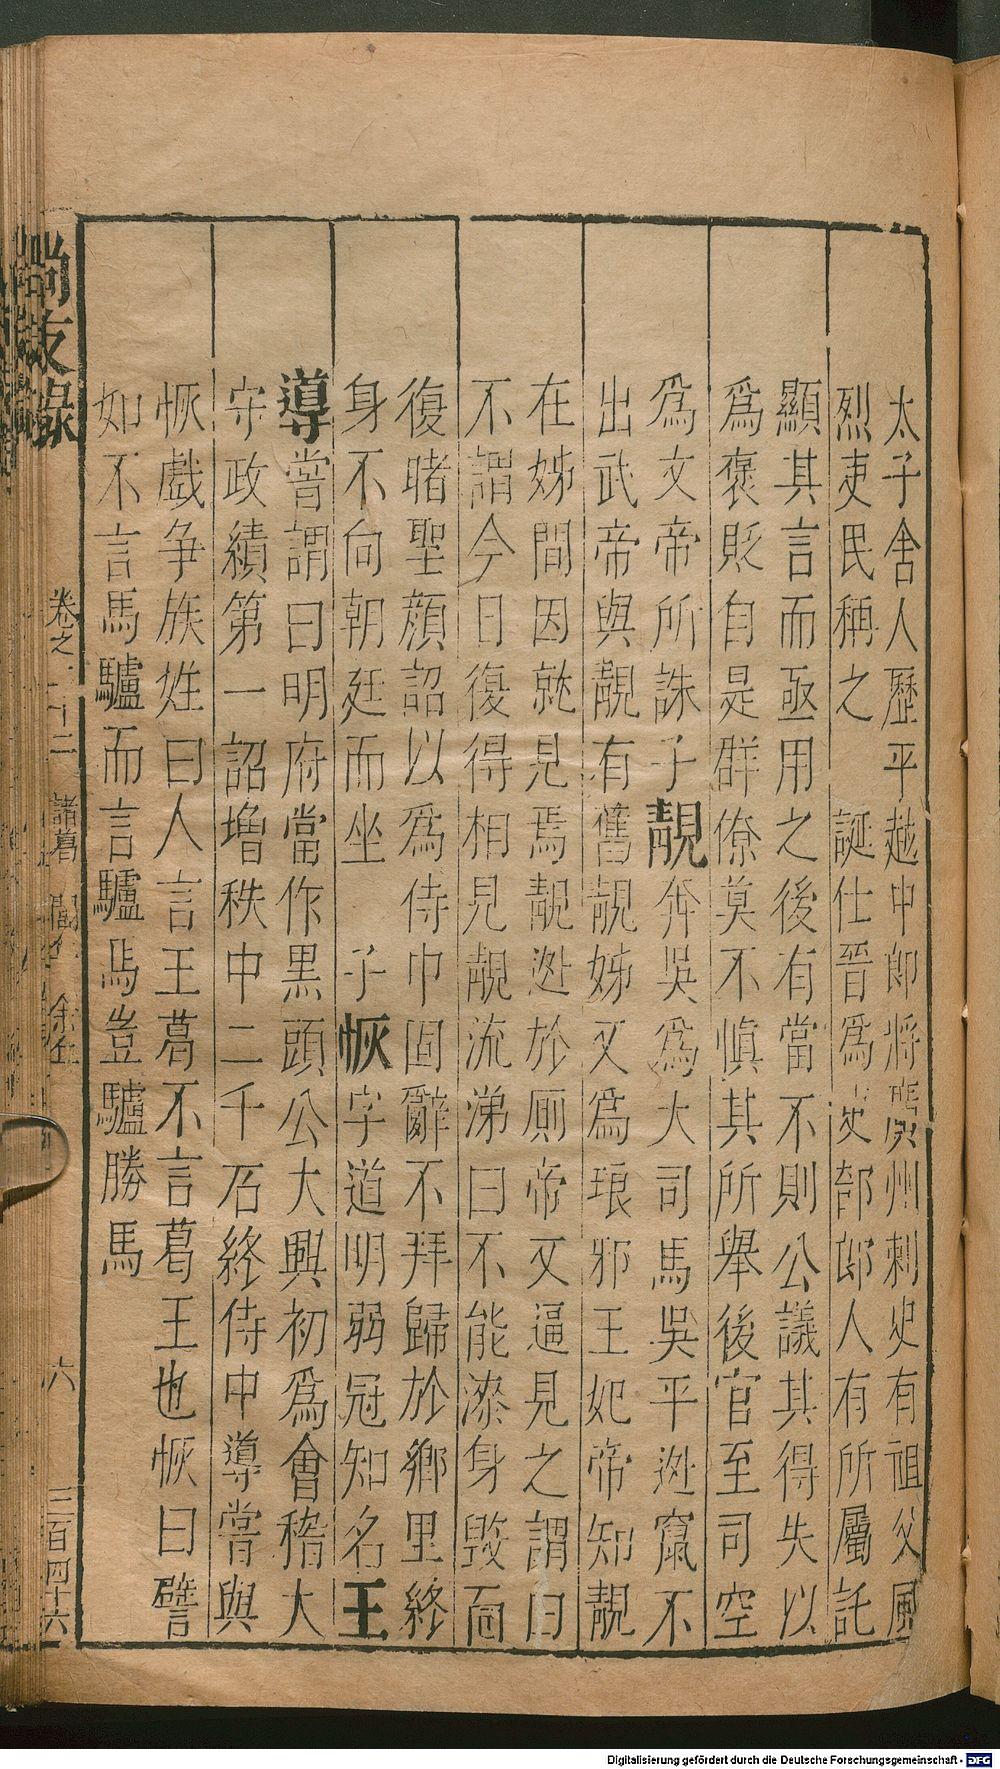 太子舍人歷平越中郎將廣州刺史有祖父風
烈吏民稱之 誕仕晉爲吏部郎人有所屬託
顯其言而亟用之後有當不則公議其得失以
爲褒貶自是群僚莫不慎其所舉後官至司空
爲文帝所誅子靚奔吳爲大司馬吳平逃竄不
出武帝與靚有舊靚姊又爲琅邪王妃帝知靚
在姊間因就見焉靚逃於厠帝又逼見之謂曰
不謂今日復得相見靚流涕曰不能漆身毀面
復睹聖顏詔以爲侍中固辭不拜歸於鄉里終
身不向朝廷而坐 子恢字道明弱冠知名王
導嘗謂曰明府當作黑頭公大興初爲會稽大
守政績第一詔增秩中二千石終侍中導嘗與
恢戲争族姓曰人言王葛不言葛王也恢曰譬
如不言馬驢而言驢馬豈驢勝馬
尚友錄 卷之二十二 諸葛 閭 余丘 六 三百四十六
Digitalisierung gefördert durch die Deutsche Forschungsgemeinschaft - DFG